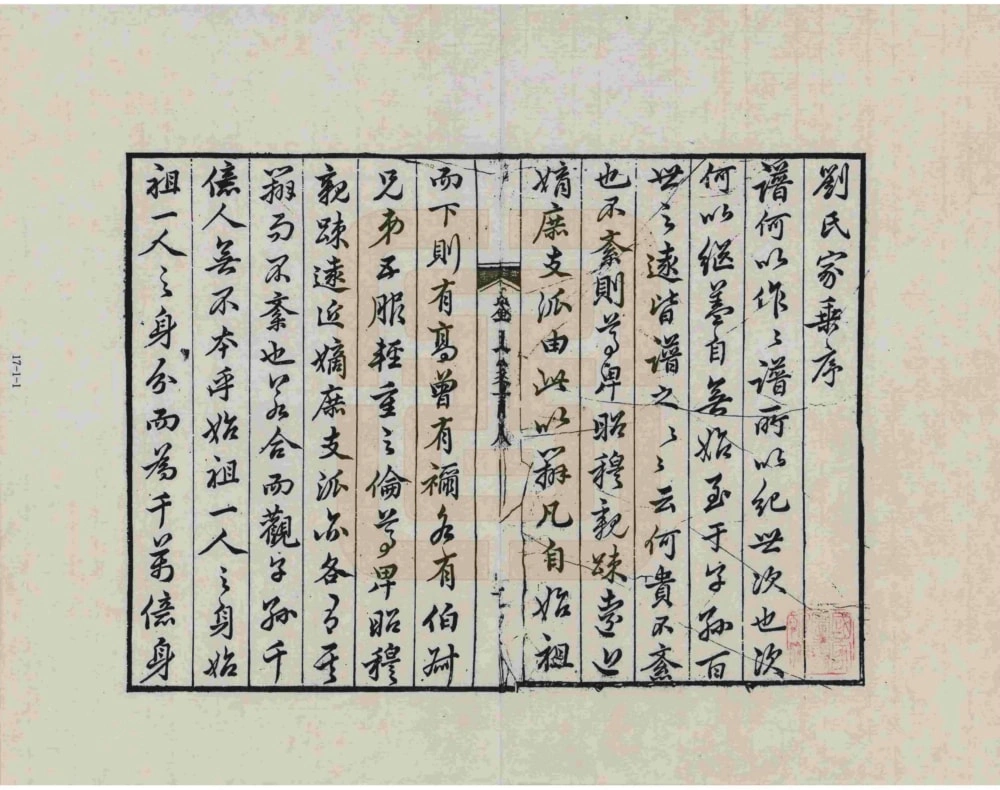 劉氏家乘序
譜何以作〻譜所以紀世次也次
何以继蓋自無始至于子孫百
世之遠皆譜之〻〻云何貴不紊
也不紊則尊卑昭穆親踈遠近
嫡庶支派由此以辨凡自始祖
而下則有高曾有禰各有伯叔
兄弟五服輕重之倫尊卑昭穆
親踈遠近嫡庶支派亦各有其
辨而不紊也若合而觀子孫千
億人無不本乎始祖一人之身始
祖一人之身分而為千萬億身
17-1-1